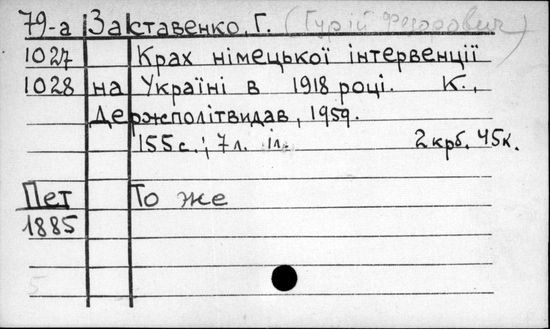 79-а Заставенко, Г. (Гурій Федорович)
1027 Крах німецької інтервенції
1028 на Україні в 1918 році. К.,
Держполітвидав, 1959.
155 с.; 7 л. іл. 2 крб. 45 к.
Пет То же
1885
5